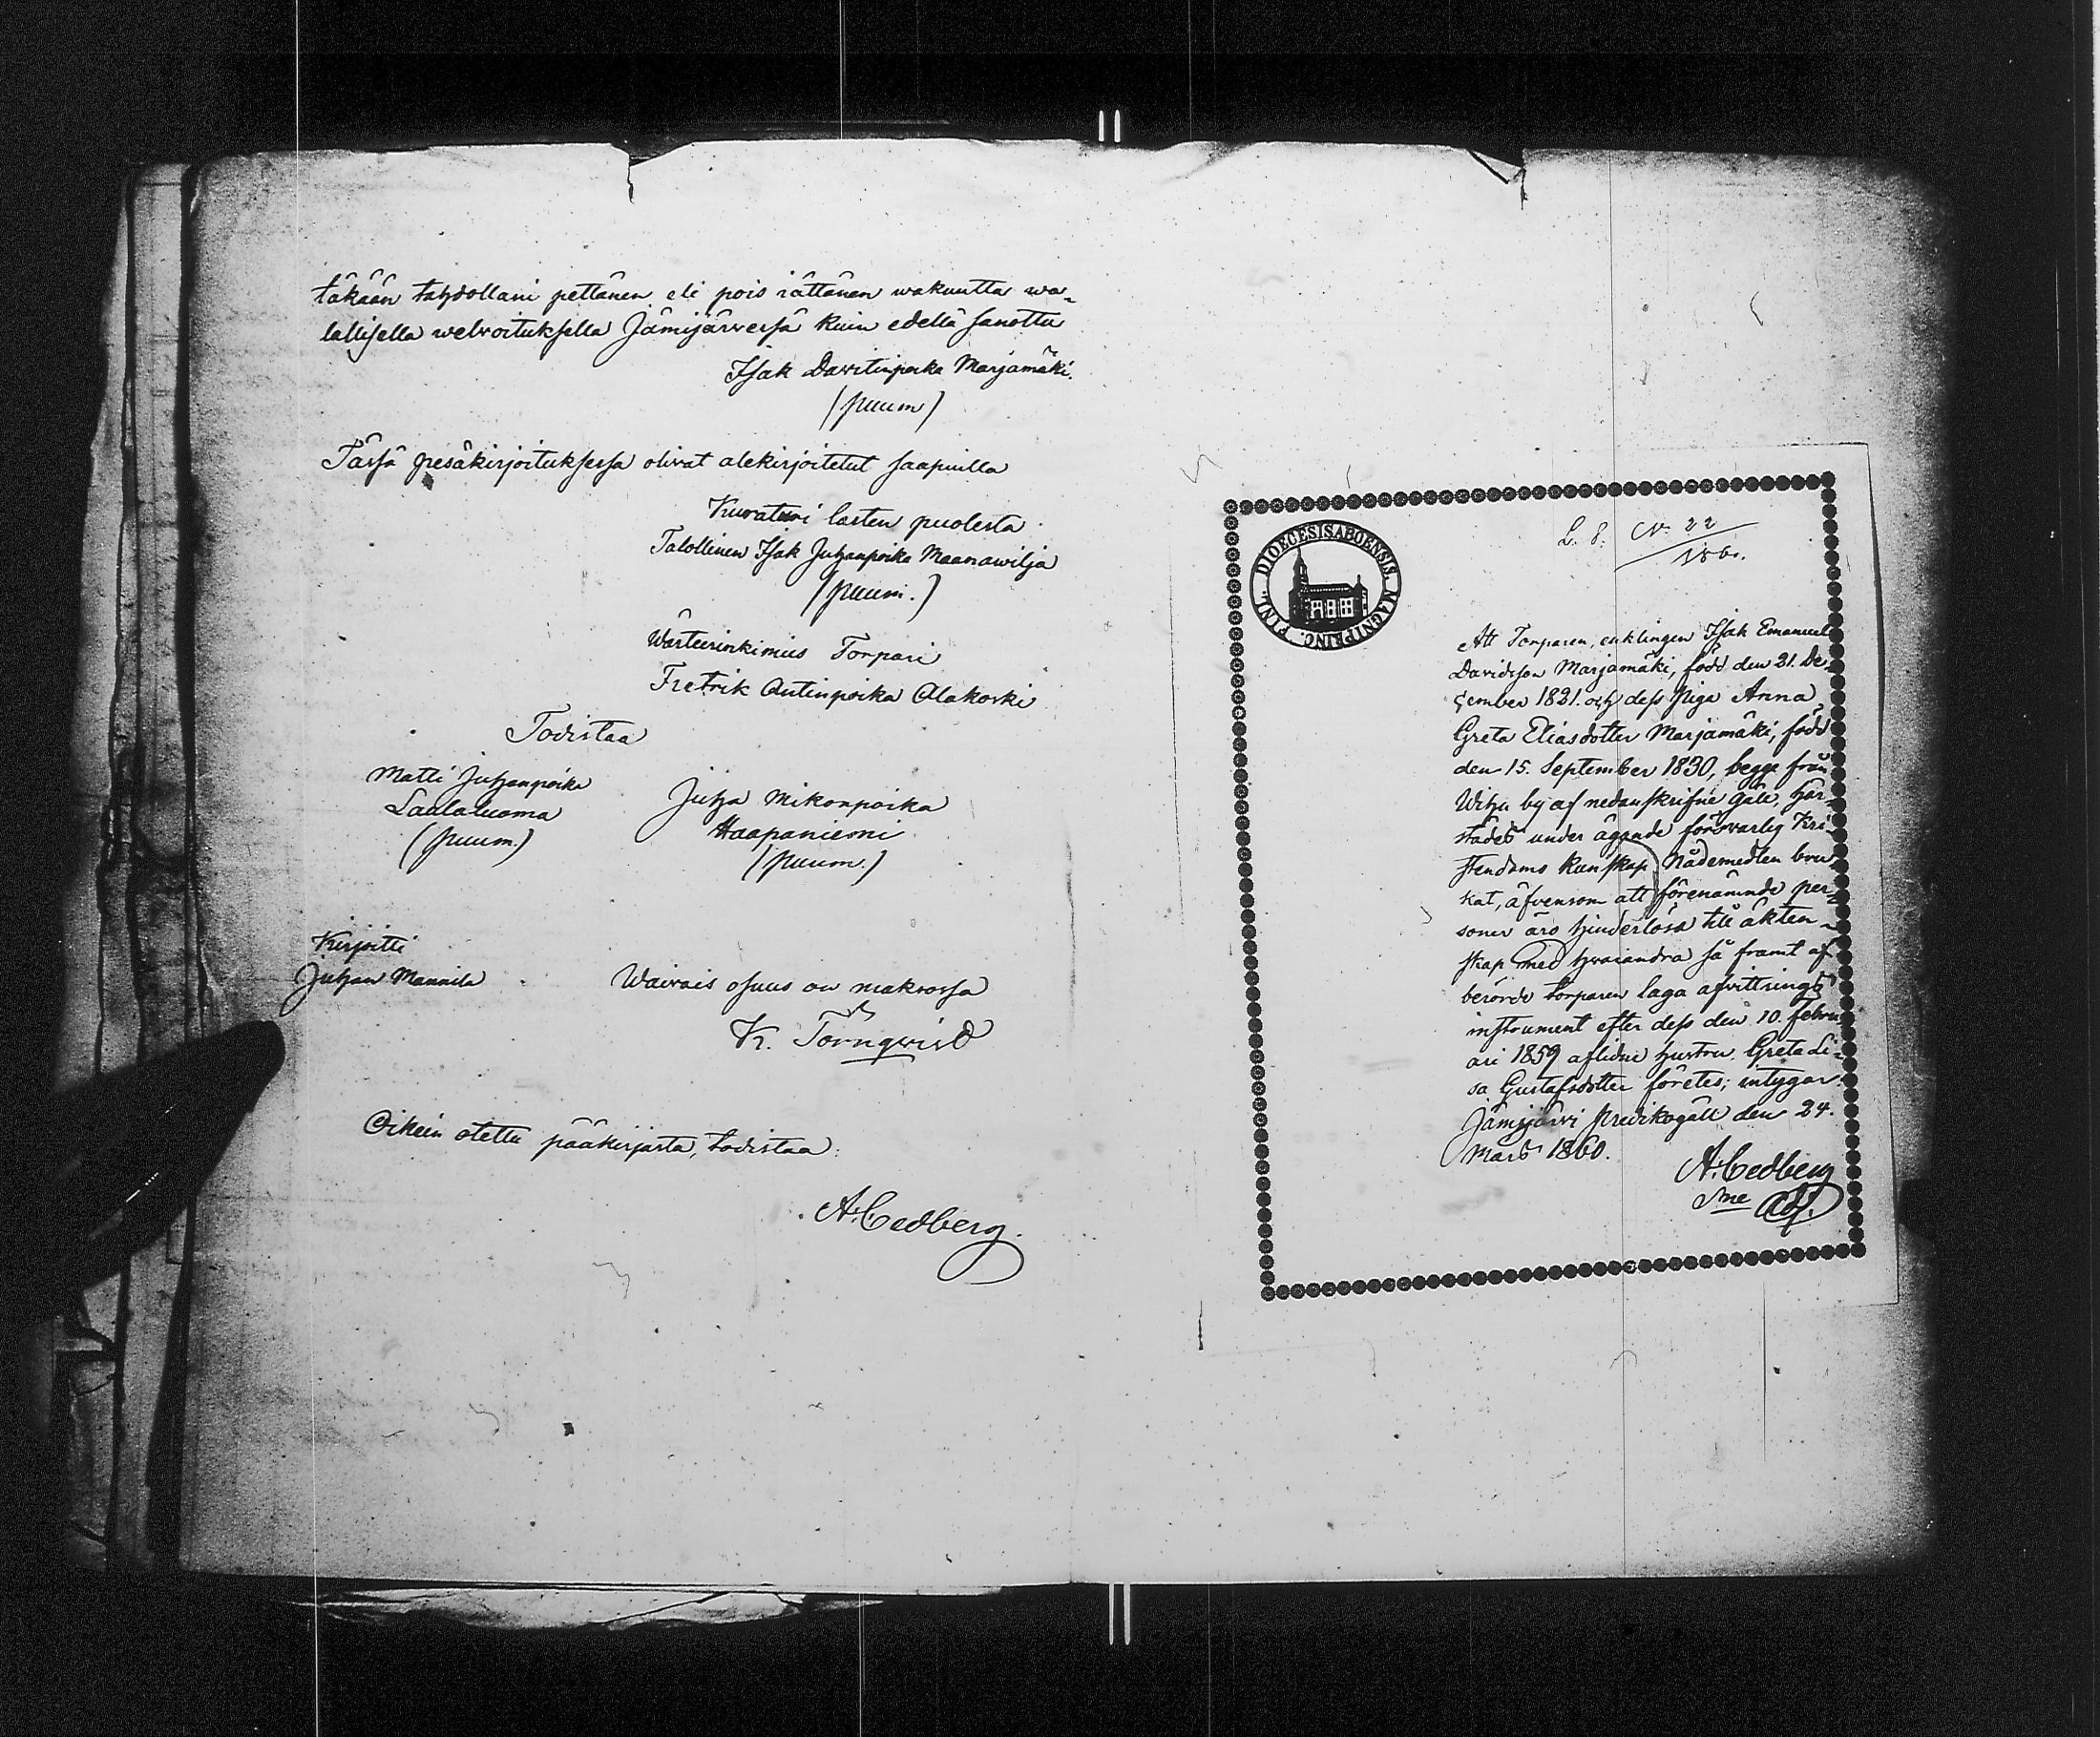 täkään tahdollani pettänen eli pois jättänen wakuutta wa-
lallisella welwoituksella Jämijärwesä kuin edellä sanottu
Isak Davitinpoika Marjamäki.
(puum)
Täsä pesäkirjoituksessa olivat alekirjoitetut saapuilla
Kuratori lasten puolesta
Talollinen Isak Juhanpoika Maanawilja
(puum.)
Wärteerinkimies Torpari
Fretrik Antinpoika Alakoski
Todistaa
Matti Juhanpoika
Laulaluoma
(puum.)
Juha Mikonpoika
Haapaniemi
(puum.)
Kirjoitti
Juhan Mannila
Waivais osuus on maksossa
K. Törnqvist
Oikein otettu pääkirjasta, todistaa:
A. Cedberg.
DIOECESIS ABOENSIS MAGNI PRINC. FINL.
L. 8: N:o 22
1860.
Att Torparen, enklingen Isak Emanuel
Davidsson Marjamäki, född den 21. De-
cember 1821. och dess piga Anna
Greta Eliasdotter Marjamäki, född
den 15. September 1830, begge från
Wihu by af nedanskrifne gäll, här-
städes under ägande försvarlig Kri-
stendoms kunskap Nådemedlen bru-
kat, äfvensom att förenämnde per-
soner äro hinderlösa till äkten-
skap med hvarandra så framt af
berörde torparen laga afvittrings
instrument efter dess den 10. Febru-
ari 1859 aflidne hustru Greta Li-
sa Gustafsdotter företes; intygar.
Jämijärvi Predikogäll den 24.
Mars 1860.
A. Cedberg